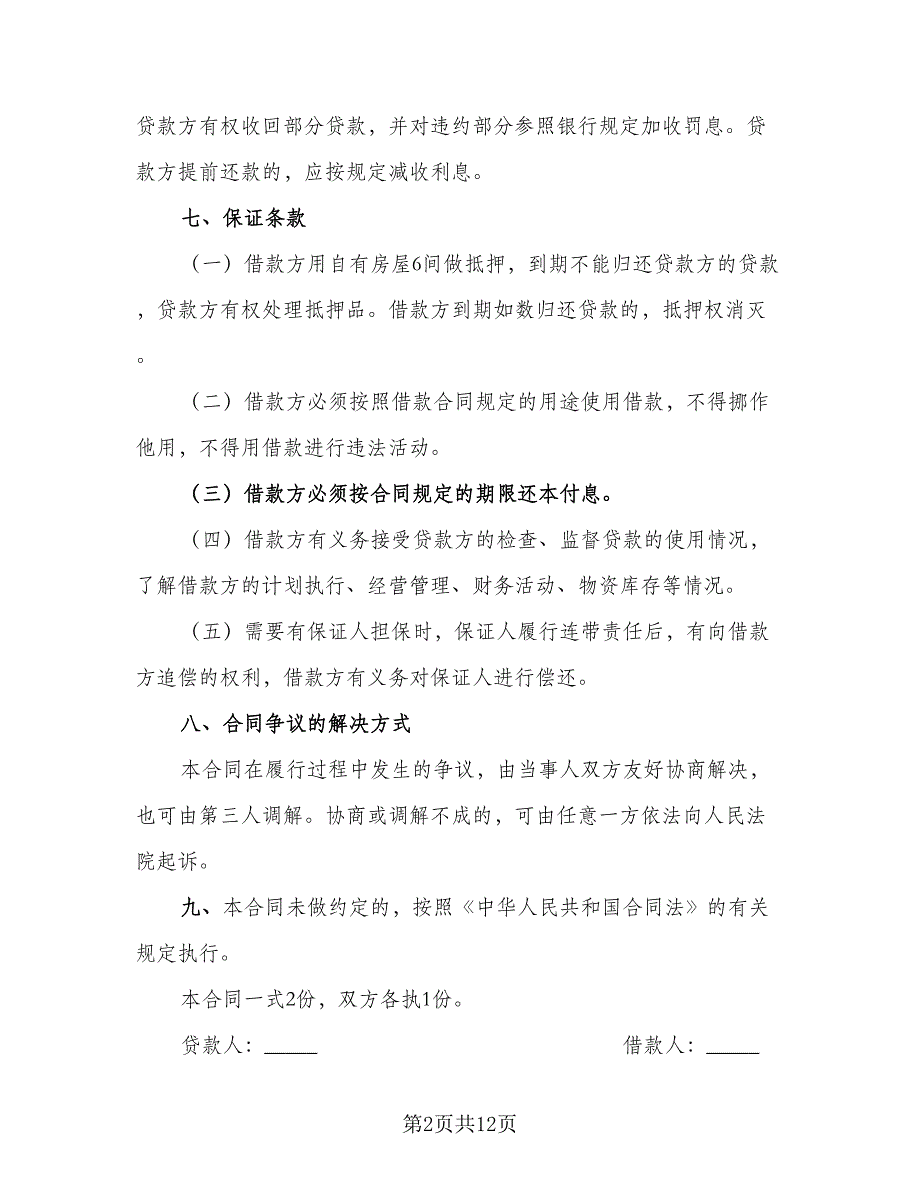 贷款方有权收回部分贷款，并对违约部分参照银行规定加收罚息。贷
款方提前还款的，应按规定减收利息。
七、保证条款
（一）借款方用自有房屋6间做抵押，到期不能归还贷款方的贷款
，贷款方有权处理抵押品。借款方到期如数归还贷款的，抵押权消灭
。
（二）借款方必须按照借款合同规定的用途使用借款，不得挪作
他用，不得用借款进行违法活动。
（三）借款方必须按合同规定的期限还本付息。
（四）借款方有义务接受贷款方的检查、监督贷款的使用情况，
了解借款方的计划执行、经营管理、财务活动、物资库存等情况。
（五）需要有保证人担保时，保证人履行连带责任后，有向借款
方追偿的权利，借款方有义务对保证人进行偿还。
八、合同争议的解决方式
本合同在履行过程中发生的争议，由当事人双方友好协商解决，
也可由第三人调解。协商或调解不成的，可由任意一方依法向人民法
院起诉。
九、本合同未做约定的，按照《中华人民共和国合同法》的有关
规定执行。
本合同一式2份，双方各执1份。
贷款人：_____ 借款人：_____
第2页共12页